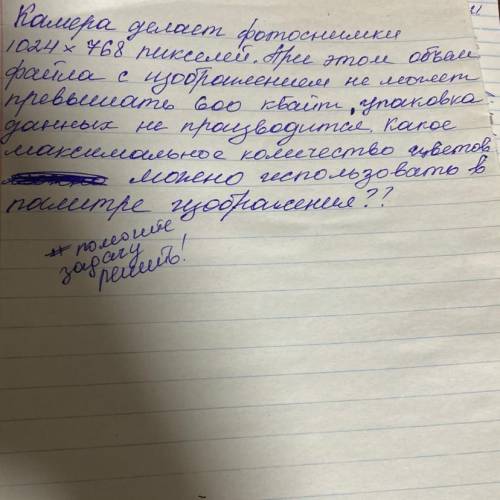 Камера делает фотоснимки
1024 × 768 пикселей. При этом объем
файла с изображением не может
превышать 600 кбайт, упаковка
данных не производится. Какое
максимальное количество цветов
можно использовать в
палитре изображения??
* помогите
задачу
решить!